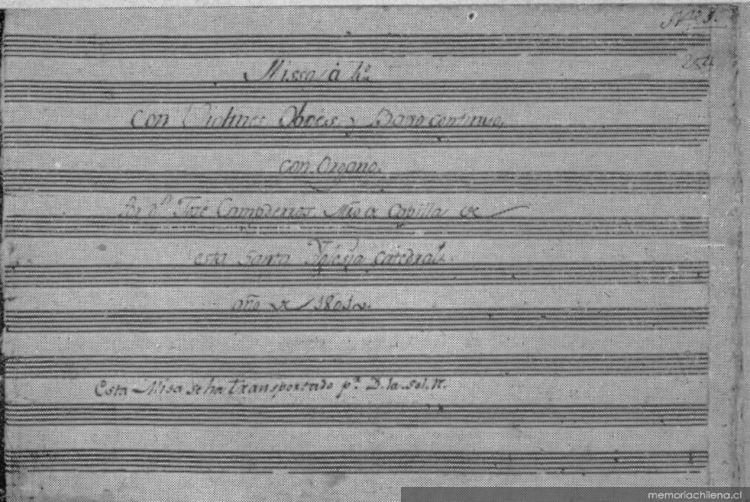 Nº 3.
Missa à 4º
Con Violines Obóes y Baxo continuo,
con Organo.
Por Dn José Campderros Mro de Capilla de
esta Santa Yglesia Catedral.
año de 1801.
Esta Misa se ha transportado pr D. la sol. re.
memoriachilena.cl